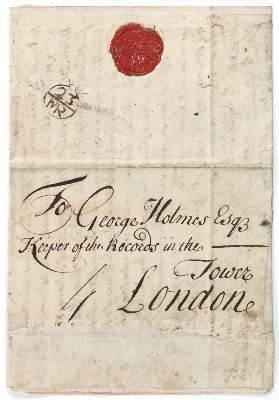 23
MR
To George Holmes Esq3
Keeper of the Records in the
Tower
4 London